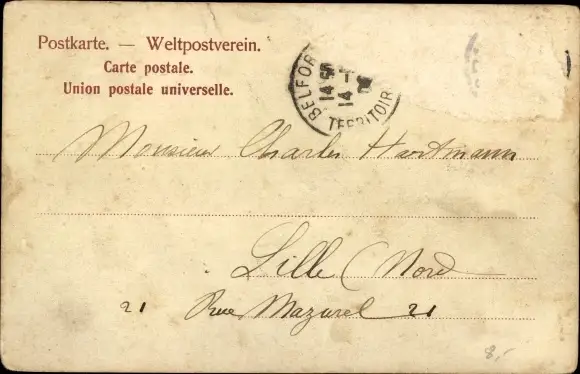 Postkarte. — Weltpostverein.
Carte postale.
Union postale universelle.
BELFORT
TERRITOIR
14
14
Monsieur Charles Hartmann
Lille (Nord
21 Rue Mazurel 21
8,-